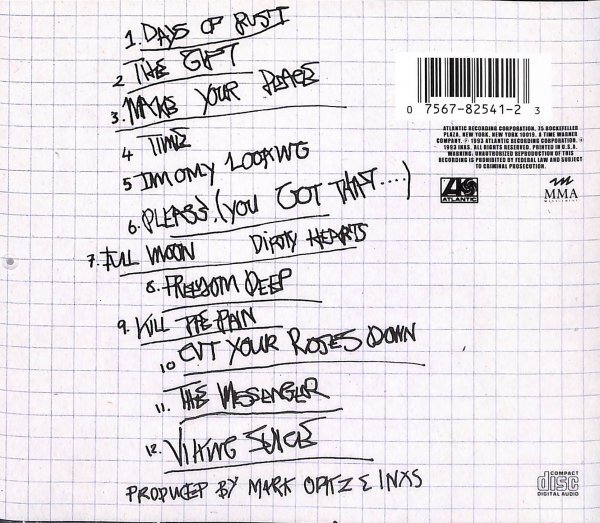 1. DAYS OF RUST
2 THE GIFT
3. MAKE YOUR PEACE
4 TIME
5 IM ONLY LOOKING
6. PLEASE, (YOU GOT THAT....)
7. FULL MOON DIRTY HEARTS
8. FREEDOM DEEP
9. KILL THE PAIN
10 CUT YOUR ROSES DOWN
11. THE MESSENGER
12. VIKING JUICE
PRODUCED BY MARK OPITZ & INXS
0 7567-82541-2 3
ATLANTIC RECORDING CORPORATION, 75 ROCKEFELLER
PLAZA, NEW YORK, NEW YORK 10019. A TIME WARNER
COMPANY. ℗ 1993 ATLANTIC RECORDING CORPORATION. ©
1993 INXS. ALL RIGHTS RESERVED. PRINTED IN U.S.A.
WARNING: UNAUTHORIZED REPRODUCTION OF THIS
RECORDING IS PROHIBITED BY FEDERAL LAW AND SUBJECT
TO CRIMINAL PROSECUTION.
ATLANTIC
MMA
COMPACT
disc
DIGITAL AUDIO